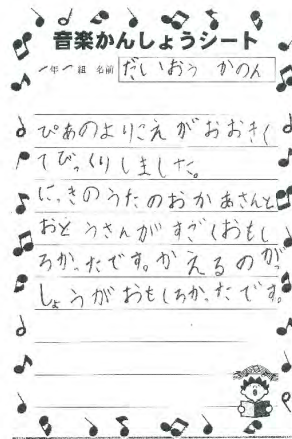 音楽かんしょうシート
一年一組 名前 だいおう かのん
ぴあのよりこえがおおきく
てびっくりしました。
にっきのうたのおかあさんと
おとうさんがすごくおもし
ろかったです。かえるのがっ
しょうがおもしろかったです。